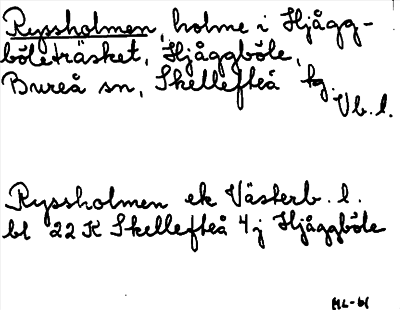 Ryssholmen, holme i Hjågg-
böleträsket, Hjåggböle,
Bureå sn, Skellefteå kg.
Vb.l.
Ryssholmen ek Västerb. l.
bl 22 K Skellefteå 4j Hjåggböle
ML-bl